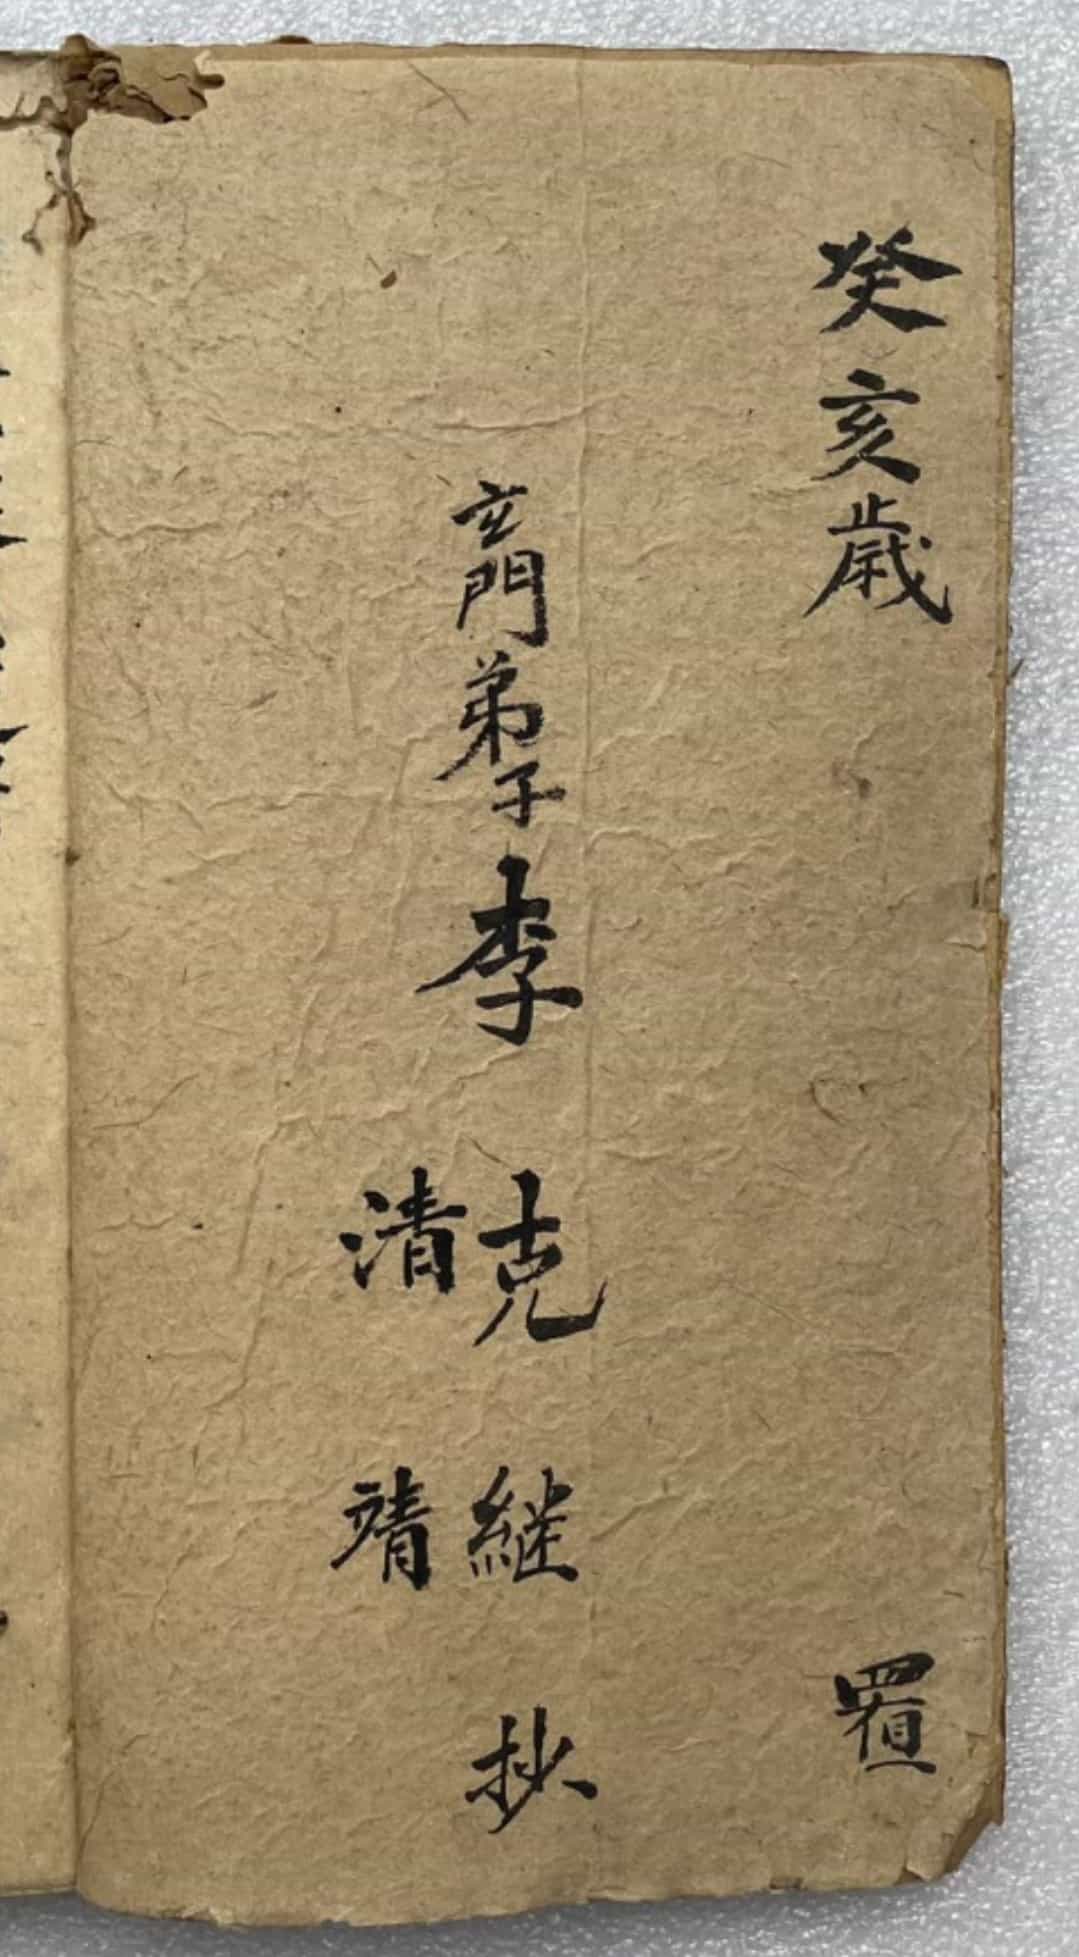 癸亥歲 置
玄門弟子李 克 継 抄
清 靖